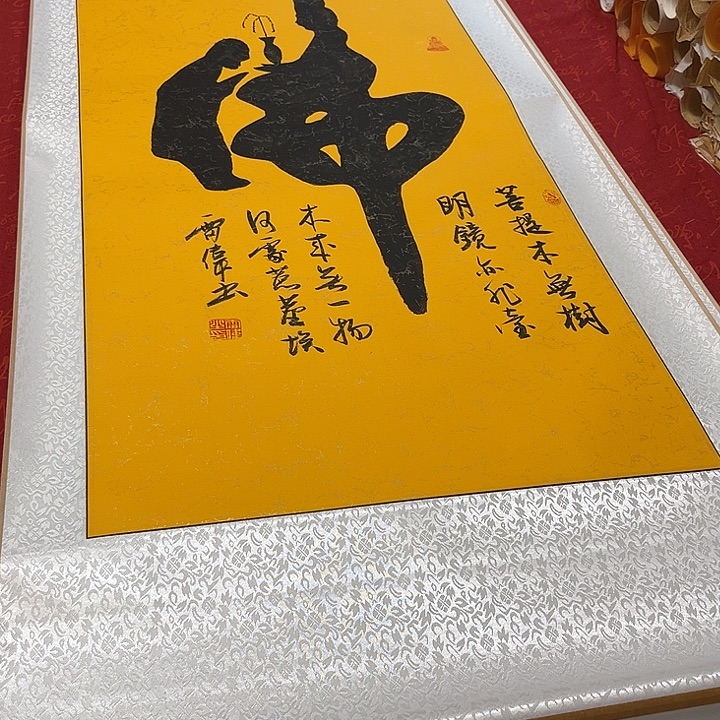 佛
菩提本無樹
明鏡亦非臺
本来無一物
何處惹塵埃
雷偉书